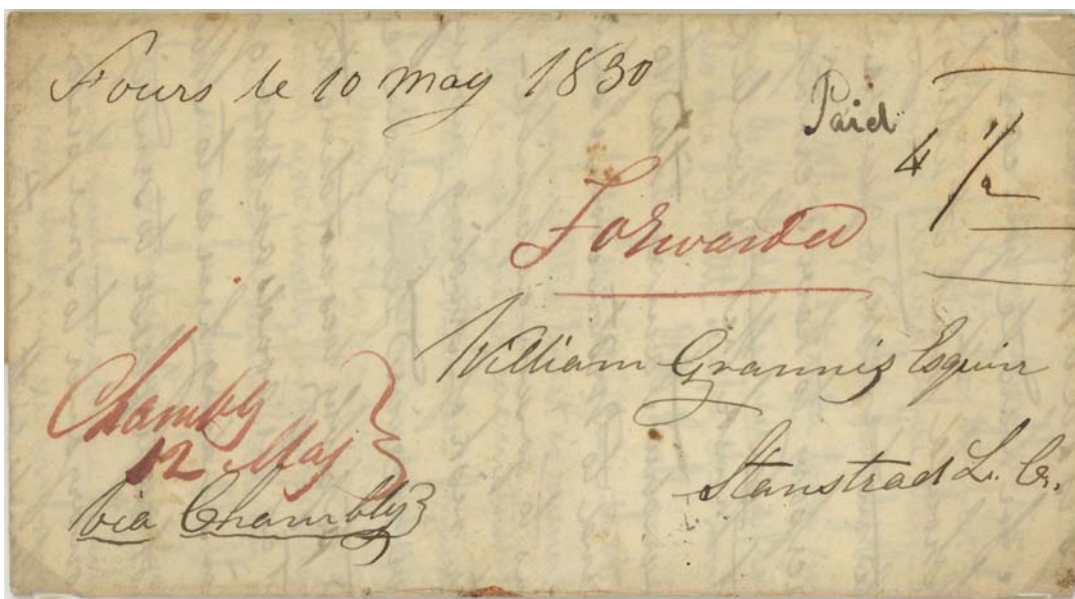 Fours le 10 may 1830
Paid 4 1/2
Forwarded
William Grannis Esquire
Stanstead L. C.
Chambly
12 May
via Chambly